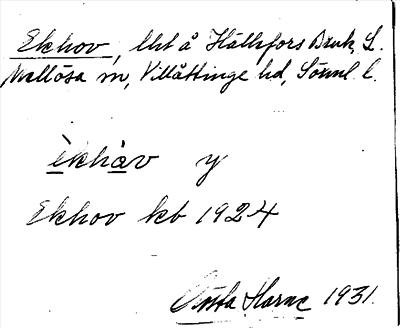 Ekhov, lht å Hällefors Bruk, S.
Mellösa sn, Villåttinge hd, Sörml. l.
èkhàv y
Ekhov kb 1924
Gösta Harne 1931.